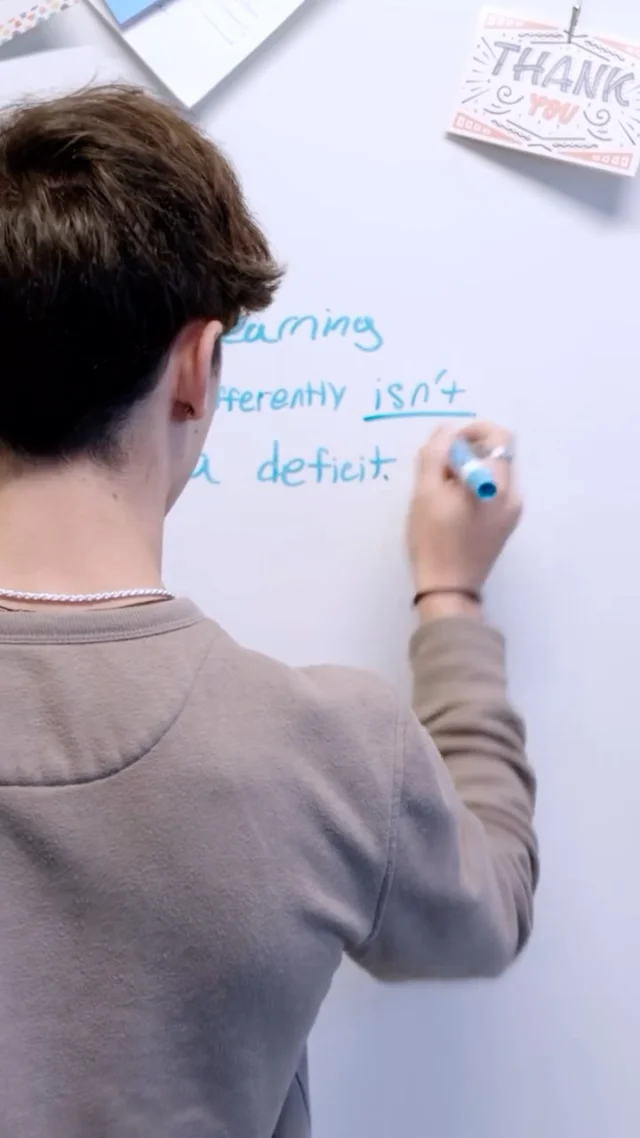 THANK
YOU
earning
fferently isn't
a deficit.